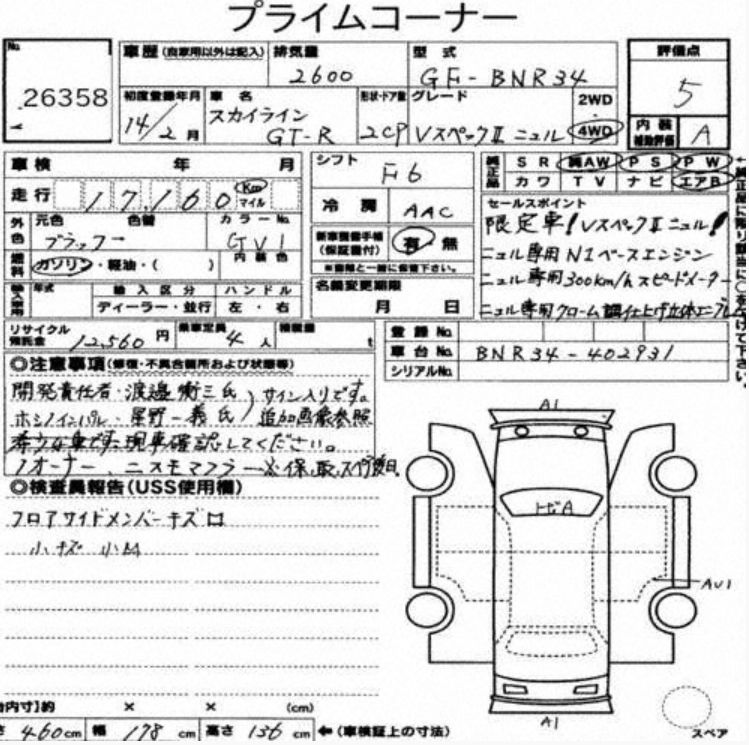 プライムコーナー
No. 26358
車歴 (自家用以外は記入)
排気量 2600
型式 GF-BNR34
評価点 5
初度登録年月 14/2月
車名 スカイライン GT-R
形状・ドア数 2CP
グレード VスペックⅡ ニュル
2WD 4WD
内装補助評価 A
車検 年 月
シフト F6
純正品 SR 純AW PS PW
カワ TV ナビ エアB
走行 17,160 Km マイル
冷房 AAC
セールスポイント
限定車! VスペックⅡニュル!
ニュル専用 N1ベースエンジン
ニュル専用300km/hスピードメーター
ニュル専用クローム調仕上げ立体エンブレム
外色 元色 ブラック 色替 カラーNo. GV1
新車整備手帳(保証書付) 有・無
※書類と一緒に保管下さい。
燃料 ガソリン・軽油・( ) 内装色
名義変更期限 月 日
輸入車用 年式 輸入区分 ハンドル
ディーラー・並行 左・右
リサイクル預託金 12,560円 乗車定員 4人 積載量 t
登録No.
車台No. BNR34-402931
シリアルNo.
◎注意事項(修復・不具合箇所および状態等)
開発責任者・渡邉衡三氏、サイン入りです。
ホシノインパル・星野一義氏 追加画像参照
希少な車です。現車確認してください。
1オーナー、ニスモマフラー
◎検査員報告(USS使用欄)
フロアサイドメンバーキズ凹
小キズ 小凹
A1
トビA
AU1
A1
スペア
内寸]約 × × (cm)
460cm 幅 178cm 高さ 136cm ←(車検証上の寸法)